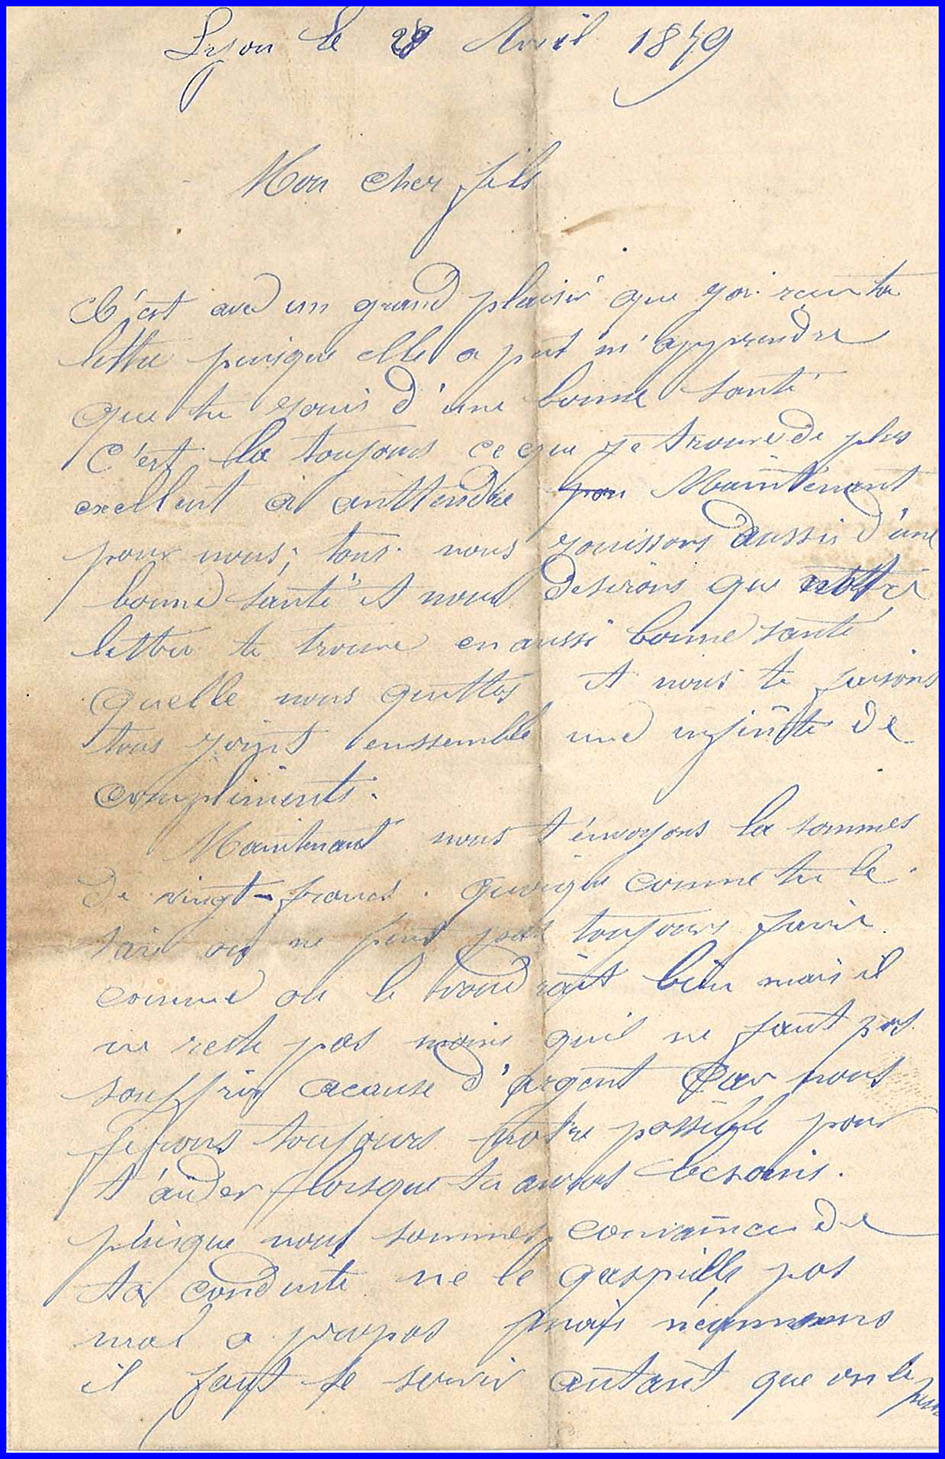 Lyon le 29 Avril 1879
Mon cher fils
C'est avec un grand plaisir que j'ai reçu ta
lettre puisque elle a put m'apprendre
que tu jouis d'une bonne santé
C'est la toujours ce que je trouve de plus
exellent à anttendre pou Maintenant
pour nous; tous nous jouissons d'aussis d'une
bonne santé et nous desirons que nottre
lettre te trouve en aussi bonne santé
quelle nous quittes et nous te faisons
tous joint enssemble une infinite de
compliments.
Maintenant nous t'envoyons la sommes
de vingt-francs. quoique comme tu le
sais on ne peut pas toujours faire
comme on le voudrait bien mais il
ne reste pas moins quil ne faut pas
souffrir acause d'argent Car nous
ferons toujours notre possible pour
t'aider lorsque tu auras besoins.
puisque nous sommes convaincu de
ta conduite ne le gaspille pas
mal a propos mais néanmoins
il faut se servir autant que on le peut